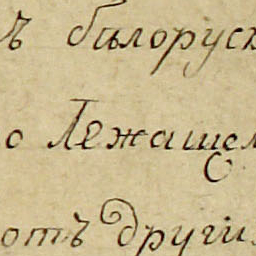 ъ бѣлорусъ
о Лежащем
отъ другим